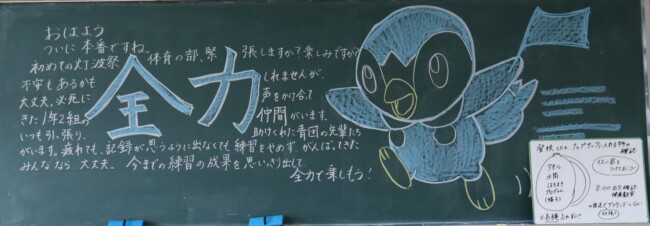 おはよう
ついに本番ですね。
初めての灯波祭 体育の部、緊張しますか?楽しみですか?
不安もあるかもしれませんが、
大丈夫。必死に声をかけ合って
きた1年2組の仲間がいます。
いつも引っ張り、助けてくれた青団の先輩たち
がいます。疲れても、記録が思うように出なくても練習をやめず、がんばってきた
みんななら、大丈夫。今までの練習の成果を思いっきり出して
全力で楽しもう!
全力
タオル
水筒
はちまき
プログラム
(帽子)
8:00